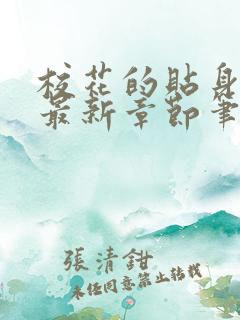 校花的貼身
最新章節筆
張清鉗
未经同意禁止转载